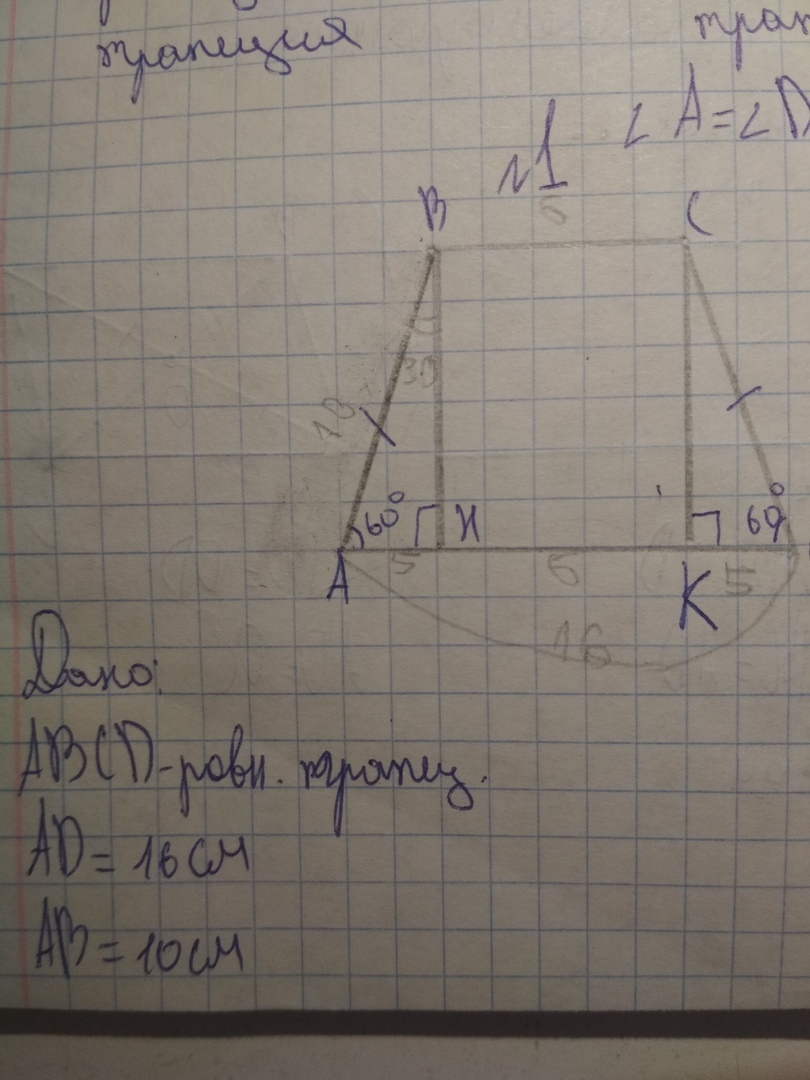 трапеция
трап
∠A=∠D
№1
B
6
C
30
10
60°
H
60°
A
5
6
K
5
16
Дано:
ABCD-равн. трапец.
AD = 16 см
AB = 10 см